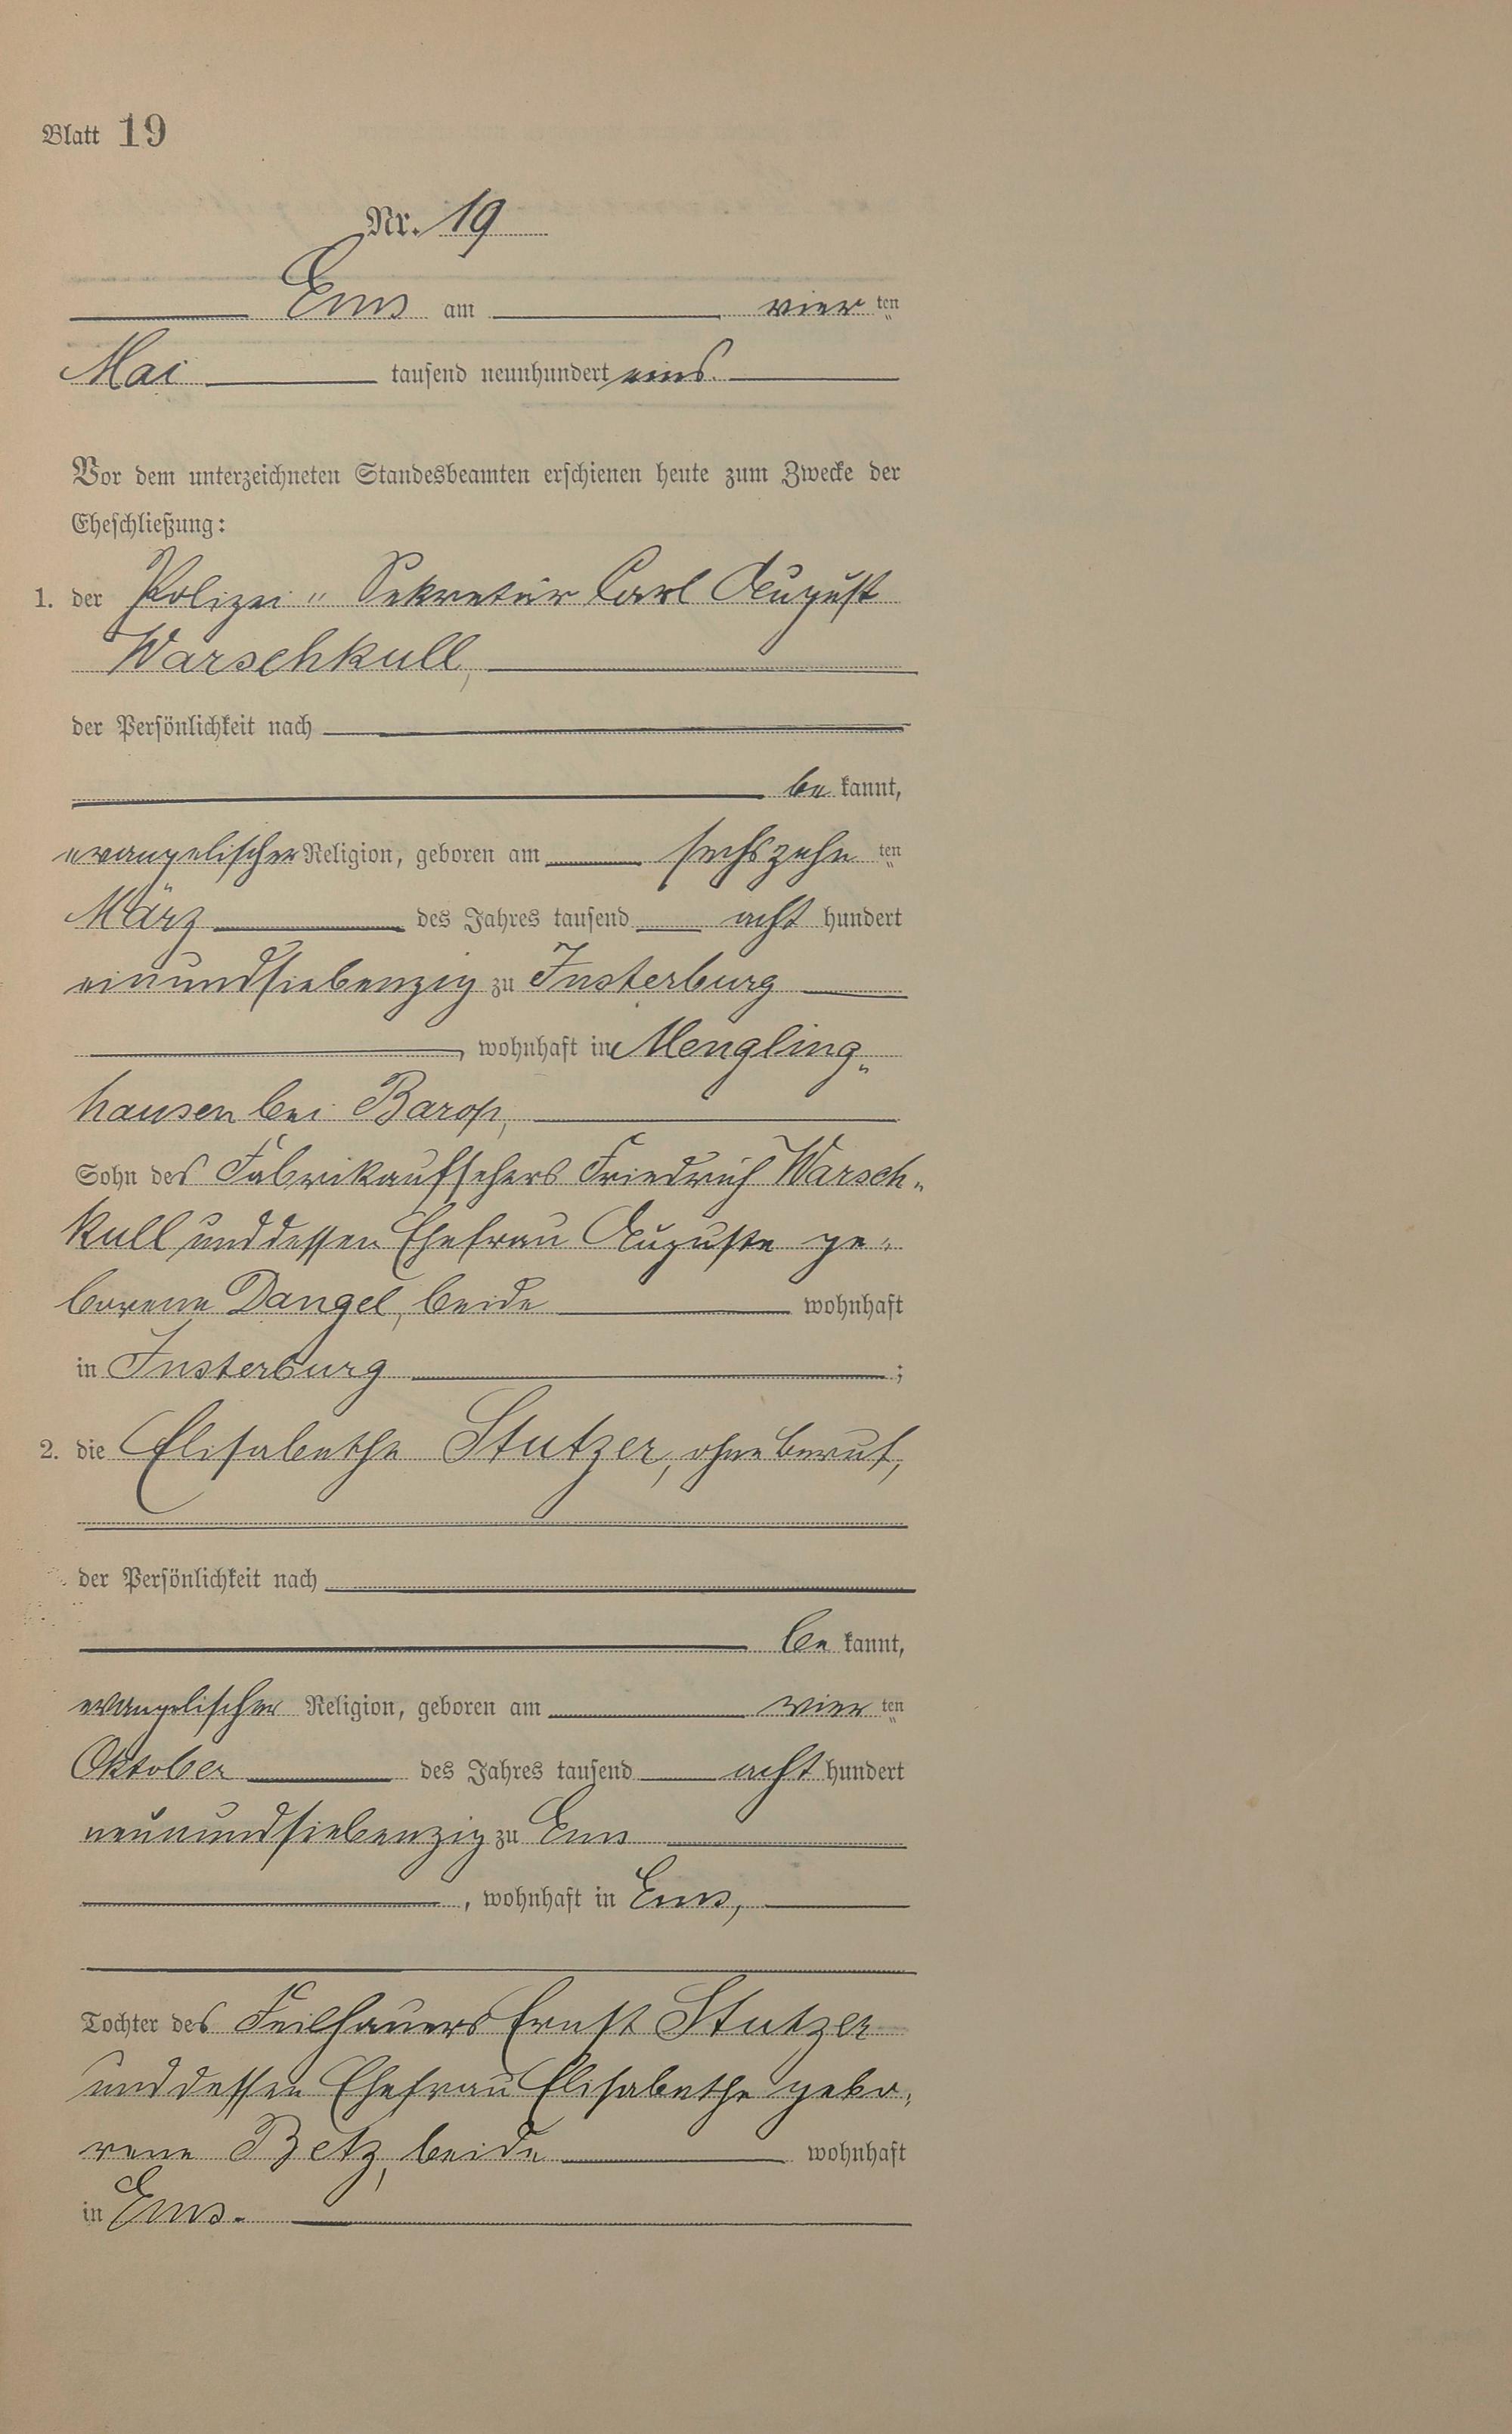 Blatt 19
Nr. 19
Ems am vier ten
Mai tausend neunhundert eins.
Vor dem unterzeichneten Standesbeamten erschienen heute zum Zwecke der
Eheschließung:
1. der Polizei " Sekretär Carl August
Warschkull,
der Persönlichkeit nach
be kannt,
evangelischer Religion, geboren am sechszehn ten
März des Jahres tausend acht hundert
einundsiebenzig zu Insterburg
, wohnhaft in Mengling„
hausen bei Barop,
Sohn des Fabrikaufsehers Friedrich Warsch„
kull und dessen Ehefrau Auguste ge„
borene Dangel, beide wohnhaft
in Insterburg ;
2. die Elisabethe Stutzer, ohne Beruf,
der Persönlichkeit nach
be kannt,
evangelischer Religion, geboren am vier ten
Oktober des Jahres tausend acht hundert
neunundsiebenzig zu Ems
, wohnhaft in Ems,
Tochter des Feilhauers Ernst Stutzer
und dessen Ehefrau Elisabethe gebo„
rene Betz, beide wohnhaft
in Ems.